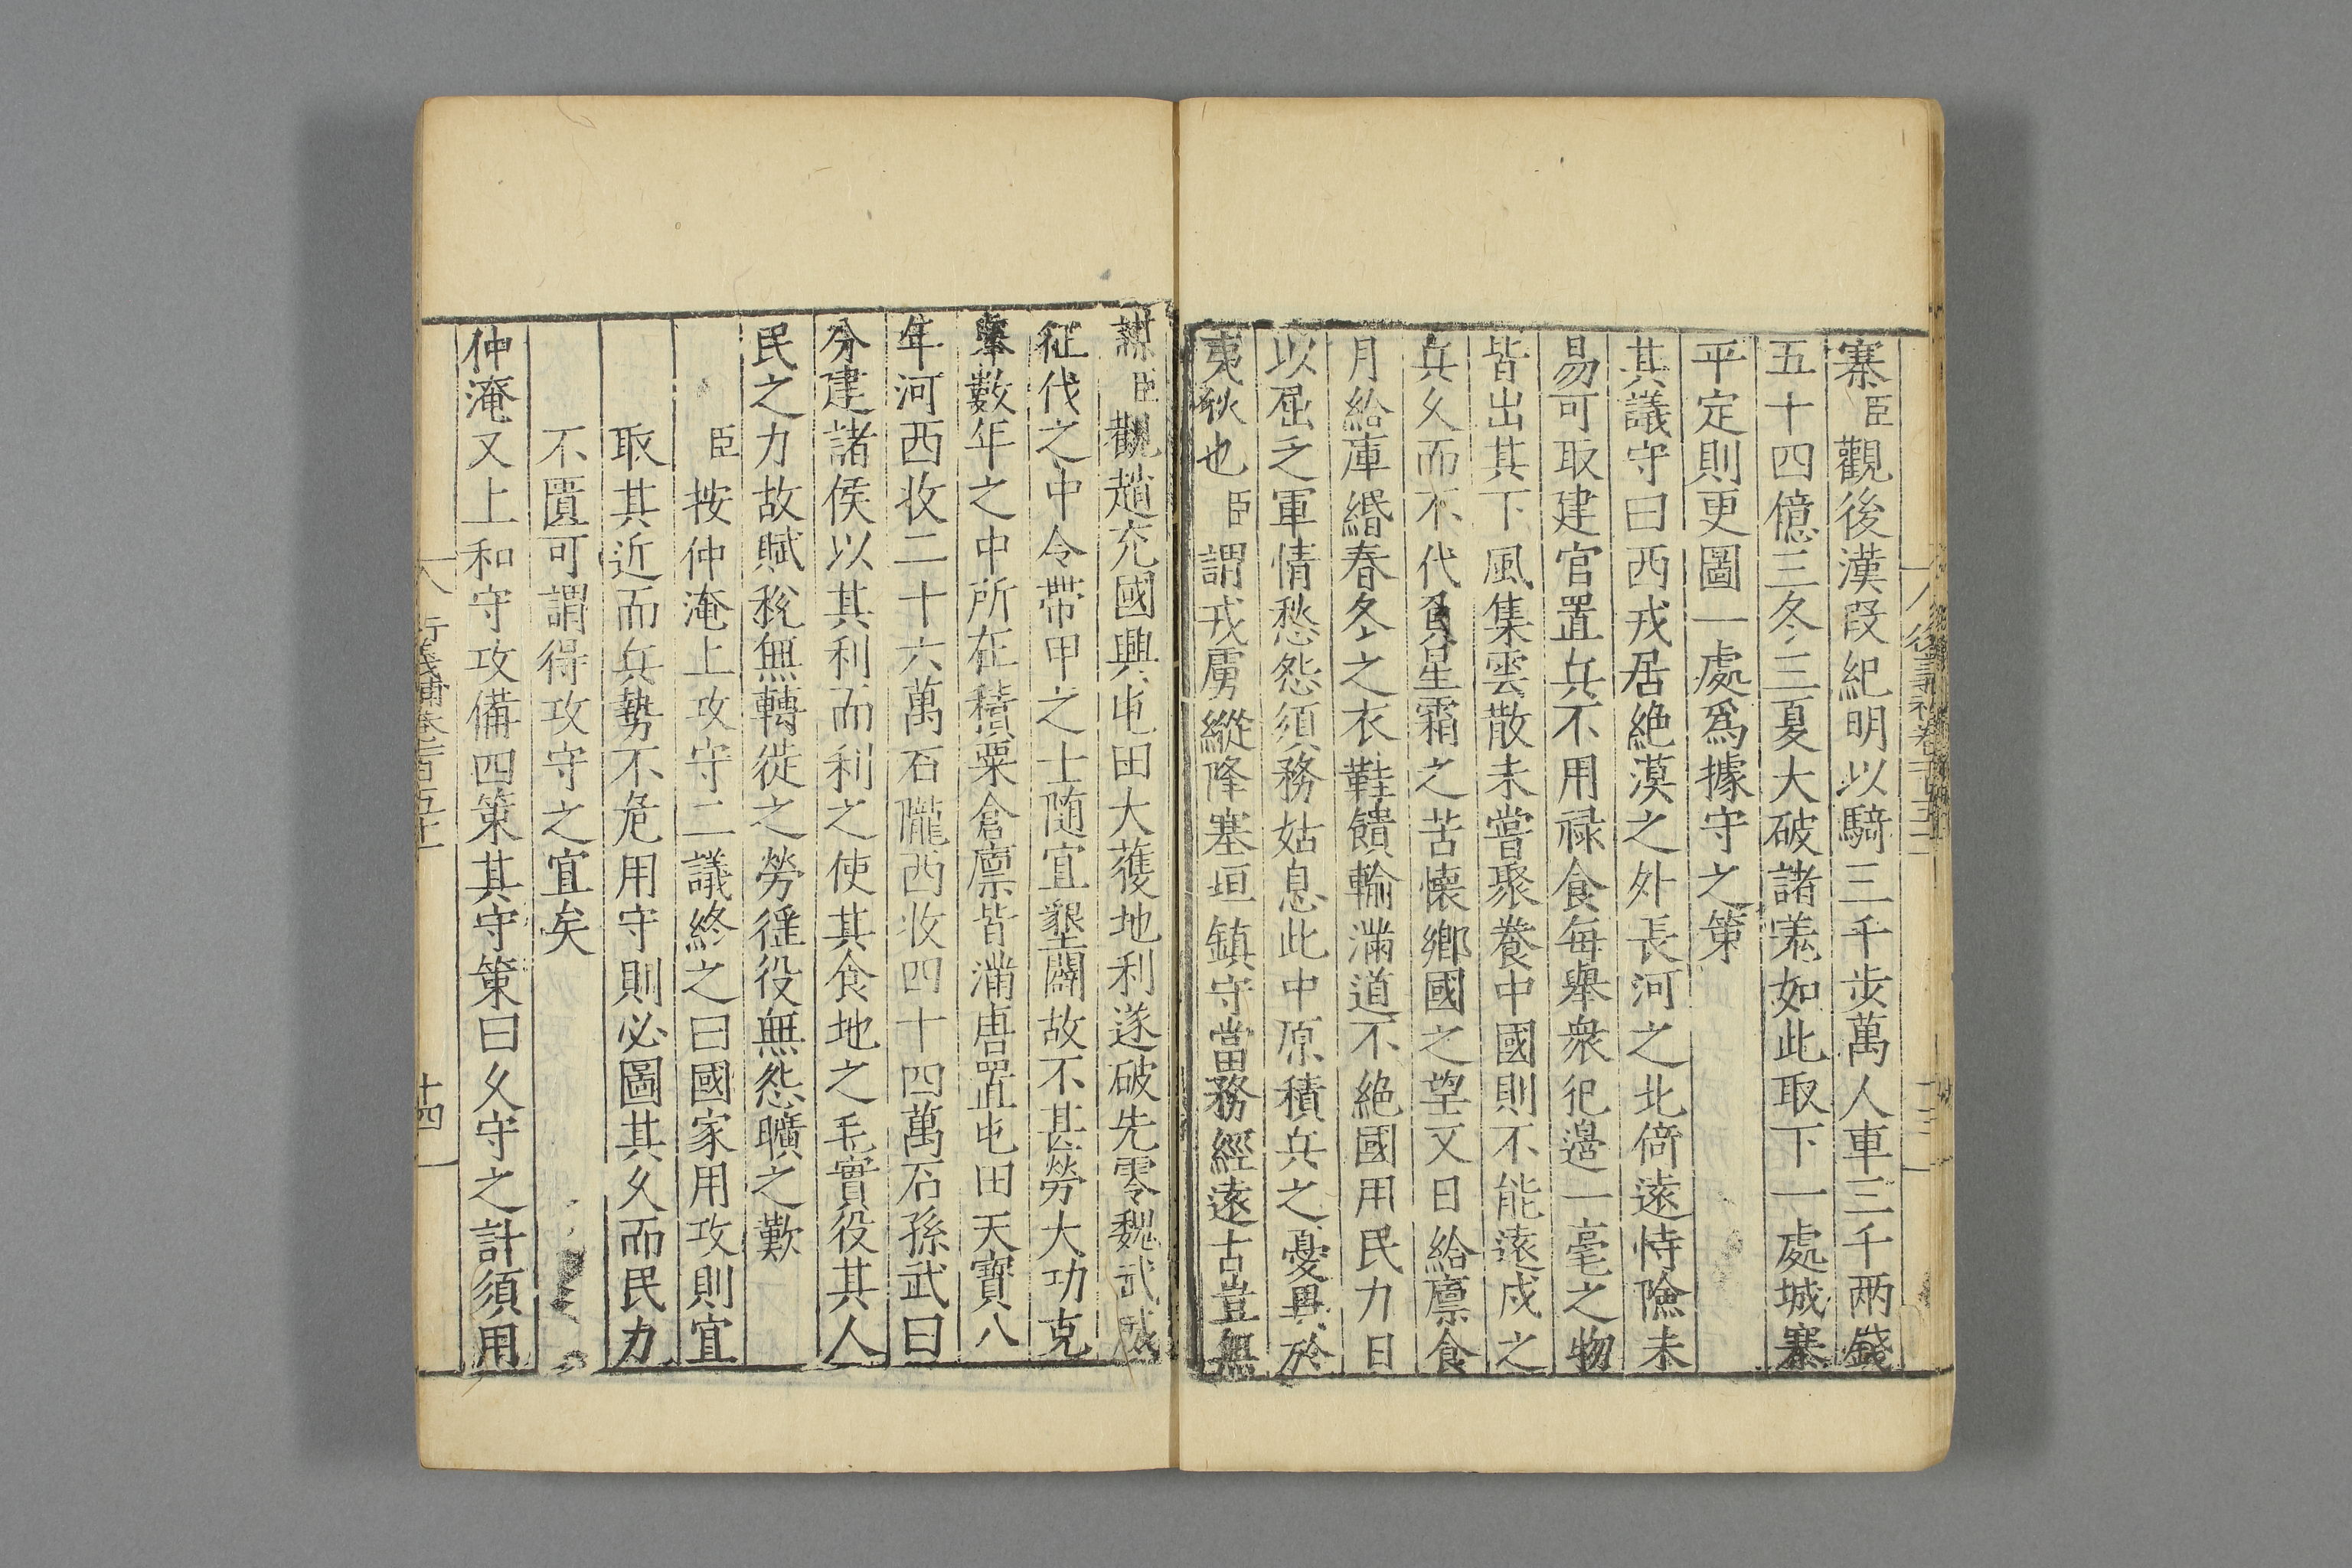 寨臣觀後漢段紀明以騎三千步萬人車三千两錢
五十四億三冬三夏大破諸羌如此取下一處城寨
平定則更圖一處爲據守之策
其議守曰西戎居絶漠之外長河之北倚遠恃險未
易可取建官置兵不用禄食每舉衆犯邉一毫之物
皆出其下風集雲散未嘗聚養中國則不能遠戍之
兵久而不代負星霜之苦懐鄉國之望又日給廪食
月給庫緡春冬之衣鞋饋輸滿道不絶國用民力日
以屈乏軍情愁怨須務姑息此中原積兵之憂異於
夷狄也臣謂戎虜縱降塞垣鎮守當務經遠古豈無
謀臣觀趙充國興屯田大獲地利遂破先零魏武
征伐之中令帶甲之士随宜墾闢故不甚勞大功克
舉數年之中所在積粟倉廪皆滿唐置屯田天寳八
年河西收二十六萬石隴西收四十四萬石孫武曰
分建諸侯以其利而利之使其食地之毛實役其人
民之力故賦稅無轉徙之勞徭役無怨曠之歎
臣按仲淹上攻守二議終之曰國家用攻則宜
取其近而兵勢不危用守則必圖其久而民力
不匱可謂得攻守之宜矣
仲淹又上和守攻備四策其守策曰久守之計須用
十四